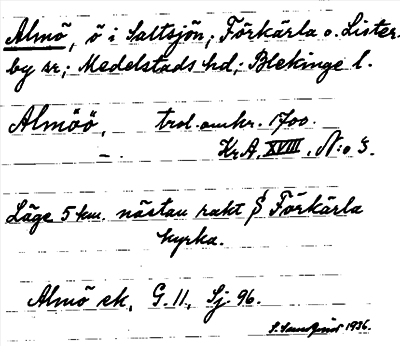 Almö, ö i Saltsjön; Förkärla o. Lister-
by sr; Medelstads hd, Blekinge l.
Almöö, trol. omkr. 1700.
– . Kr.A. XVIII. N:o 3.
Läge 5 km. nästan rakt S Förkärla
kyrka.
Almö ek, G. 11, Sj 96.
1936.